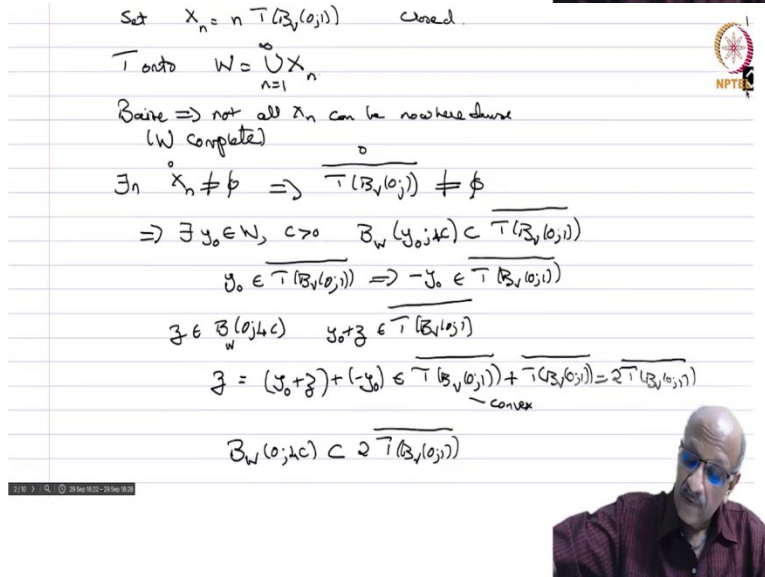 Set X_n = n T(B_V(0;1)) closed.
1
T onto W = ∞∪n=1 X_n.
NPTEL
Baire => not all X_n can be nowhere dense
(W complete)
∃n X̊_n ≠ φ => T(B_V(0;1))‾° ≠ φ
=> ∃ y_0 ∈ W, c>0 B_W(y_0;4c) ⊂ T(B_V(0;1))‾
y_0 ∈ T(B_V(0;1))‾ => -y_0 ∈ T(B_V(0;1))‾
z ∈ B_W(0;4c) y_0+z ∈ T(B_V(0;1))‾
z = (y_0+z)+(-y_0) ∈ T(B_V(0;1))‾ + T(B_V(0;1))‾ = 2T(B_V(0;1))‾
- convex
B_W(0;4c) ⊂ 2 T(B_V(0;1))‾
2/10 29 Sep 18:22 - 29 Sep 18:28